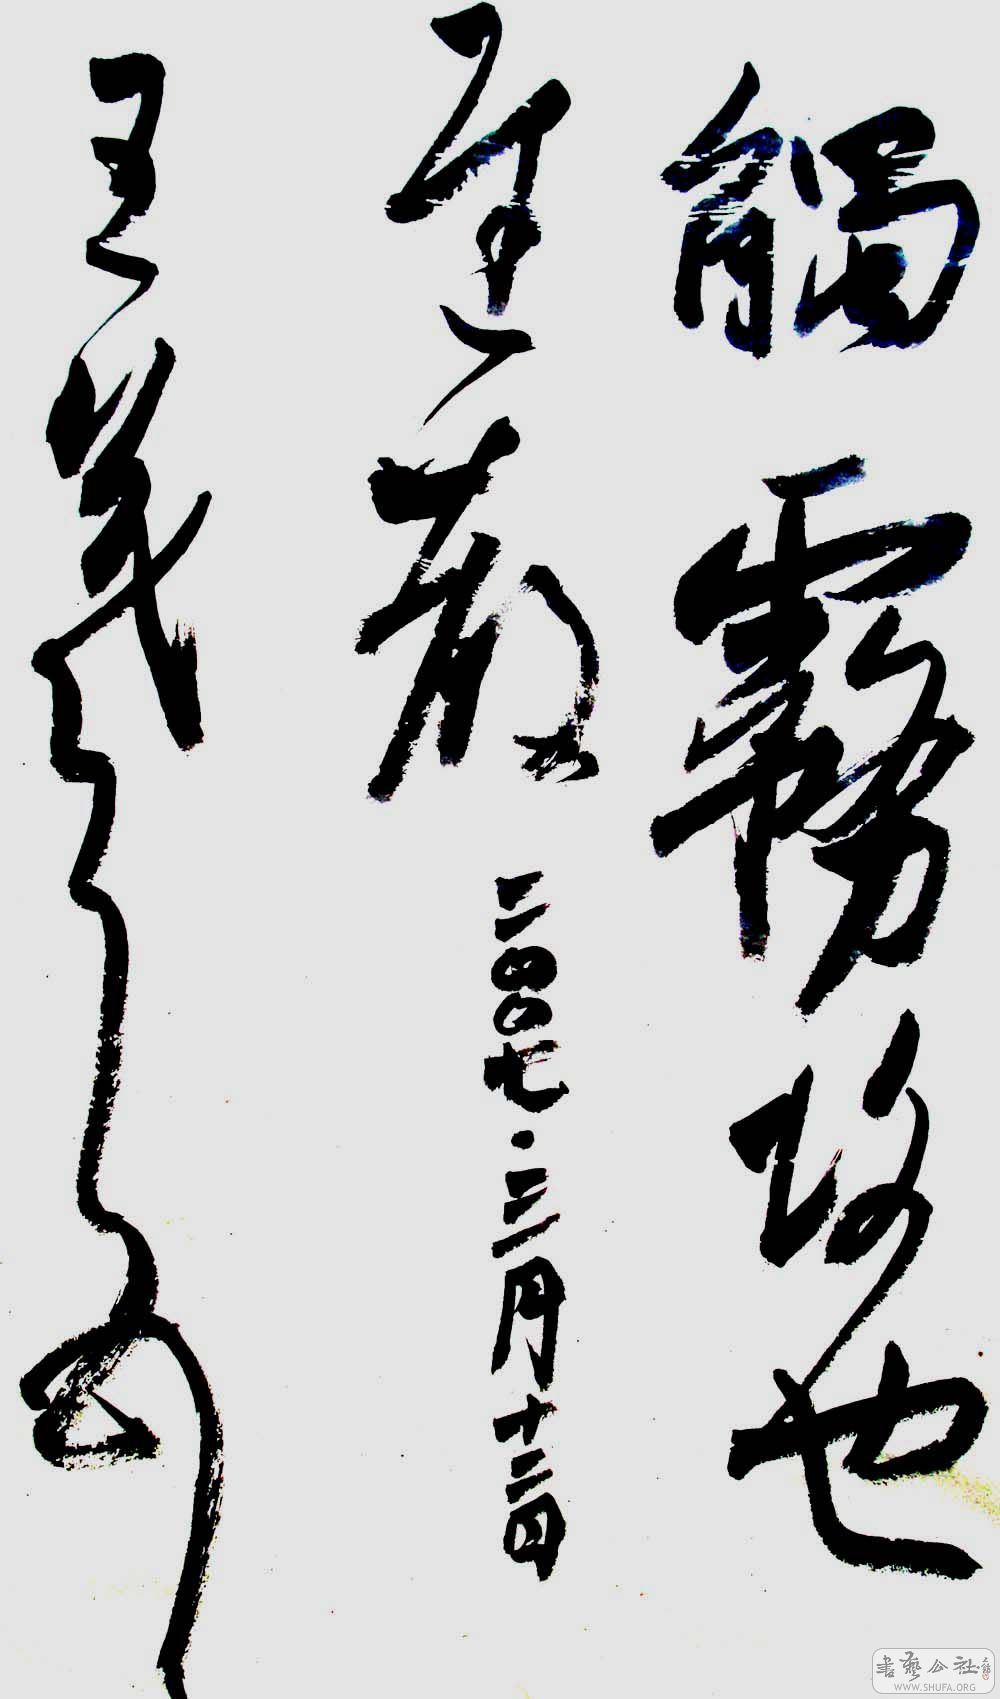 觸霧故也
遲散 二〇〇七·三月十二日
王羲之
書藝公社
WWW.SHUFA.ORG